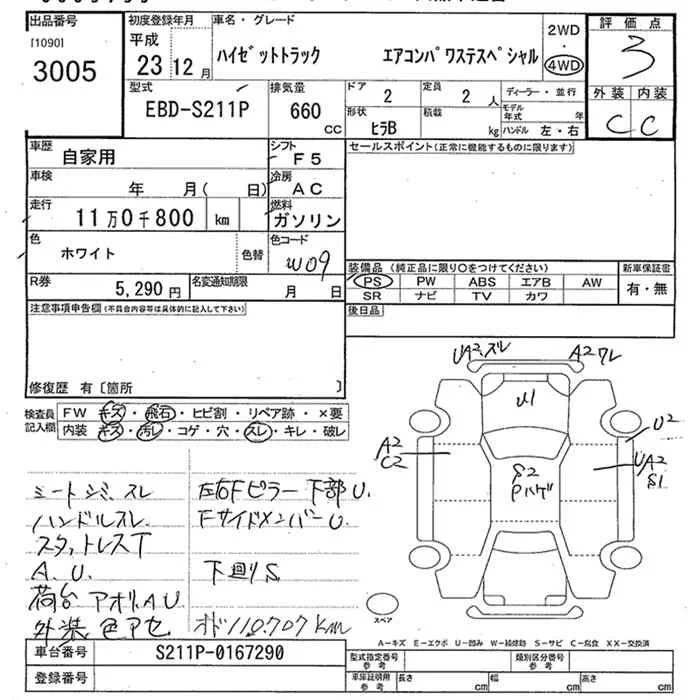 出品番号
[1090]
3005
初度登録年月
平成
23 12 月
車名・グレード
ハイゼットトラック エアコンパワステスペシャル
2WD
・
4WD
評価点
3
外装 内装
C C
型式
EBD-S211P
排気量
660
CC
ドア
2
定員
2 人
形状
ヒラB
積載
kg
ディーラー・並行
モデル年式 年
ハンドル 左・右
車歴
自家用
シフト
F5
車検
年 月( 日)
冷房
AC
走行
11万0千800 km
燃料
ガソリン
色
ホワイト
色替
色コード
W09
R券
5,290 円
名変通知期限
月 日
セールスポイント(正常に機能するものに限ります)
装備品 (純正品に限り○をつけてください)
PS PW ABS エアB AW
SR ナビ TV カワ
新車保証書
有・無
後日品
注意事項申告欄(不具合内容等は具体的に記入して下さい)
修復歴 有〔箇所 〕
検査員記入欄
FW キズ・飛石・ヒビ割・リペア跡・×要
内装 キズ・汚レ・コゲ・穴・スレ・キレ・破レ
シートシミ、スレ
ハンドルスレ
スタットレスT
A.U.
荷台アオリ、A U
外装色アセ
左右Fピラー下部U.
FサイドメンバーU.
下廻りS
オド110,707km
UA2.ズレ
A2ワレ
U1
U2
A2
C2
S2
Pハゲ
UA2
S1
スペア
A-キズ E-エクボ U-凹み W-補修跡 S-サビ C-腐食 XX-交換済
車台番号
S211P-0167290
登録番号
型式指定番号
参考
類別区分番号
参考
車庫証明用
参考
長さ cm
幅 cm
高さ cm